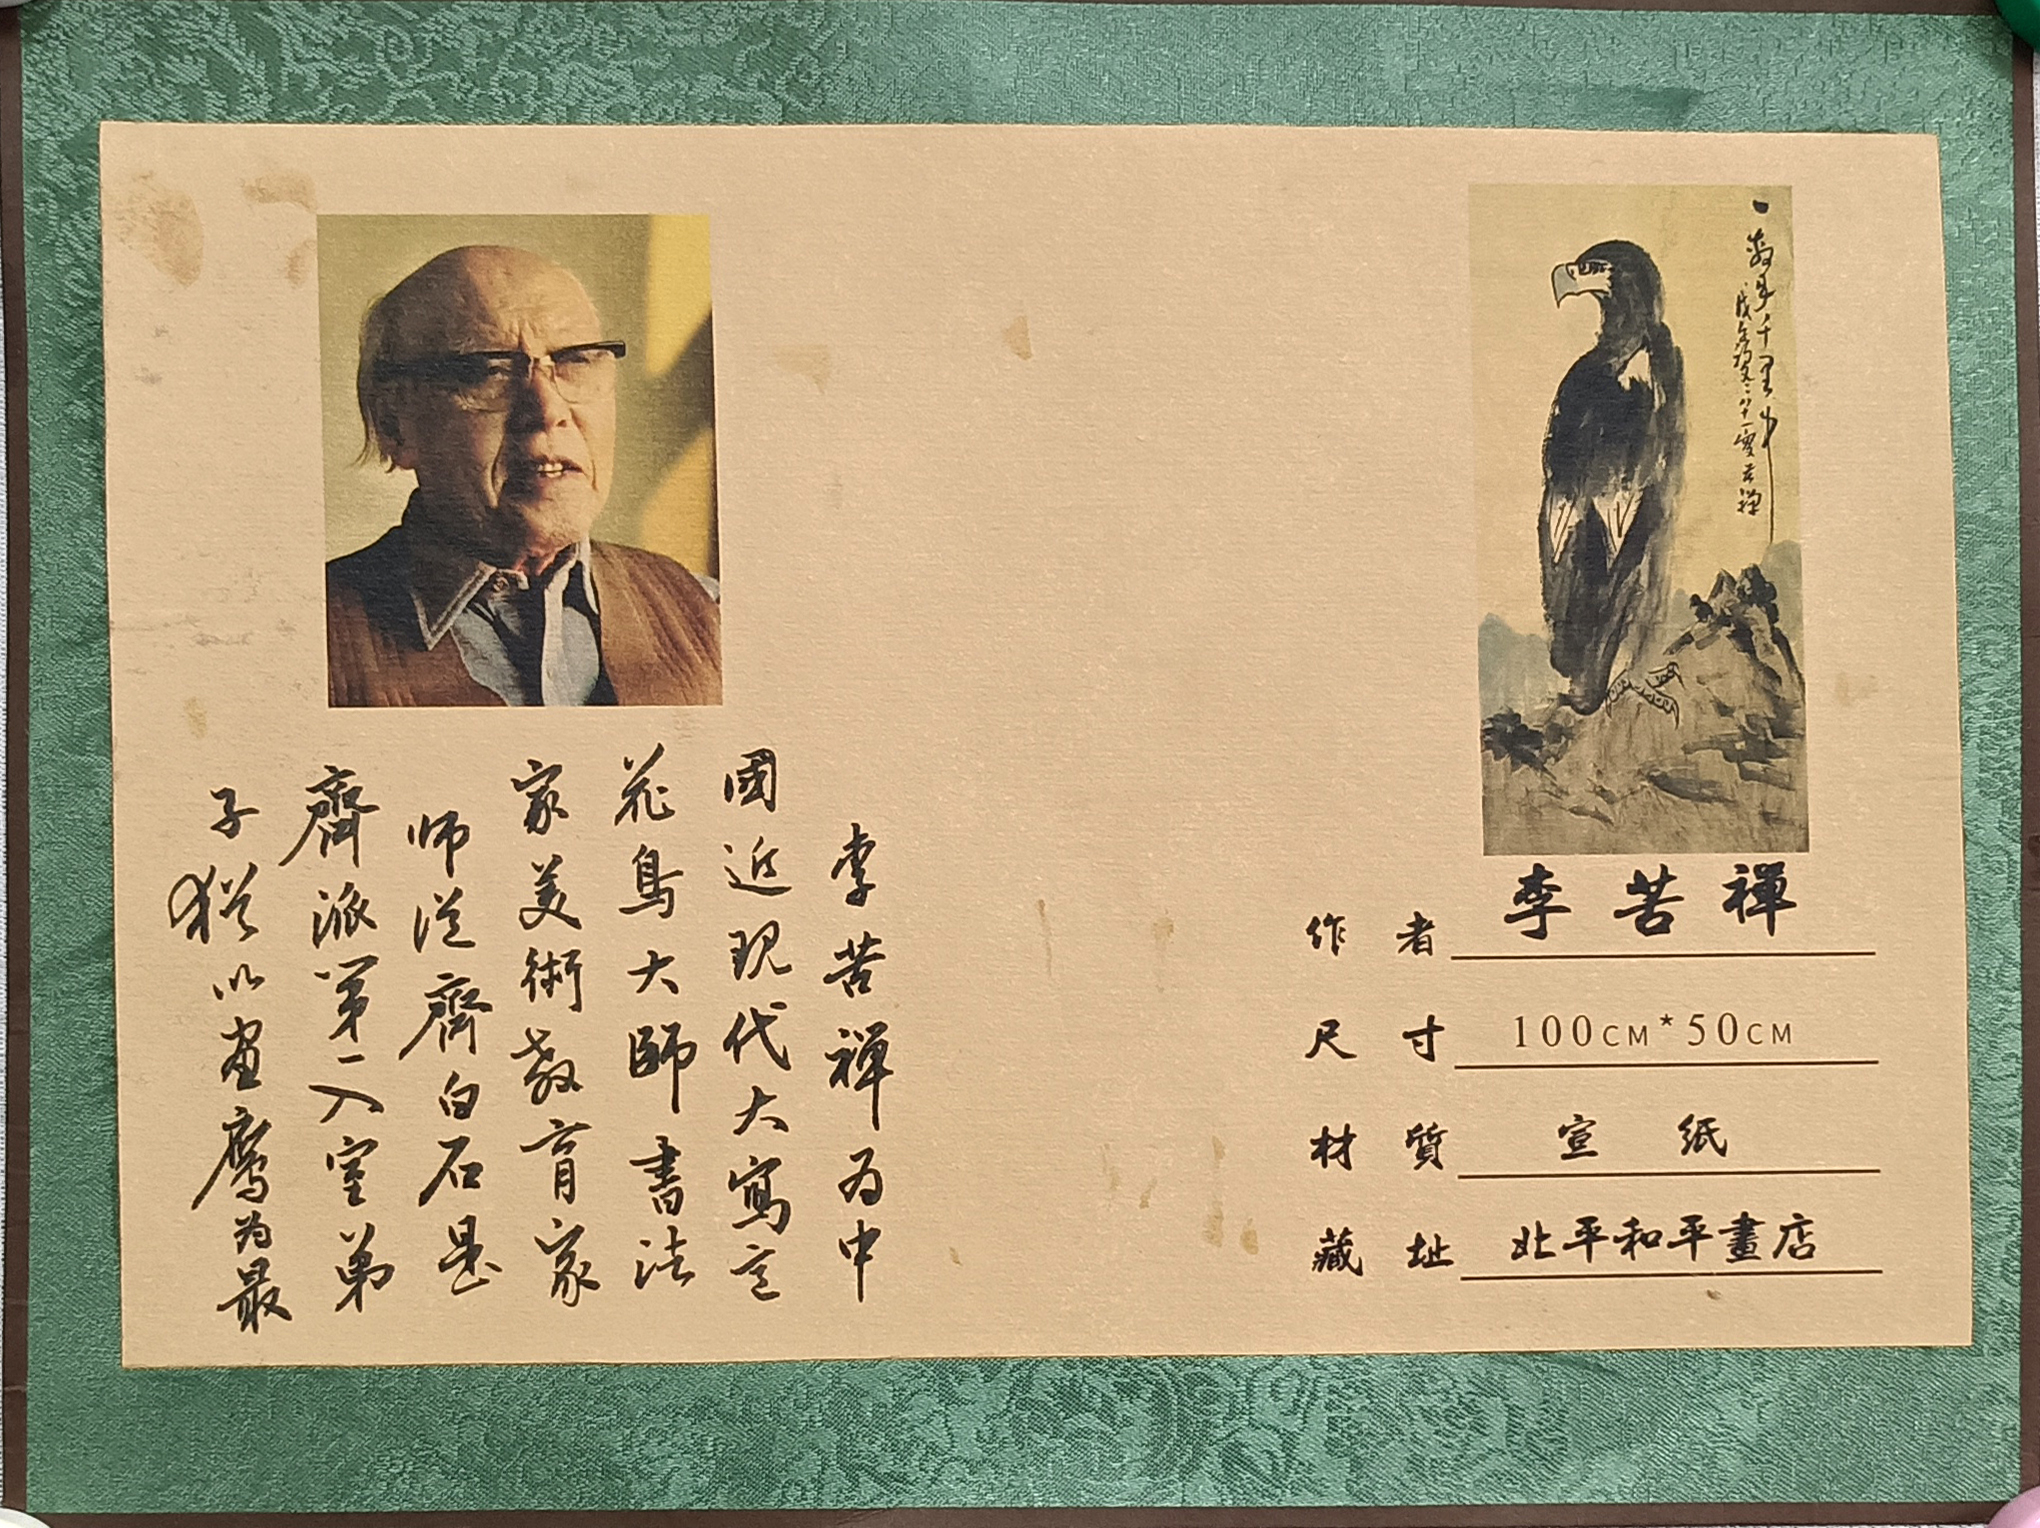 李苦禪为中
國近现代大寫意
花鳥大師書法
家美術教育家
师從齊白石是
齊派第一入室弟
子猶以畫鹰为最
千里
苦禪
作者 李苦禪
尺寸 100CM*50CM
材質 宣紙
藏址 北平和平畫店